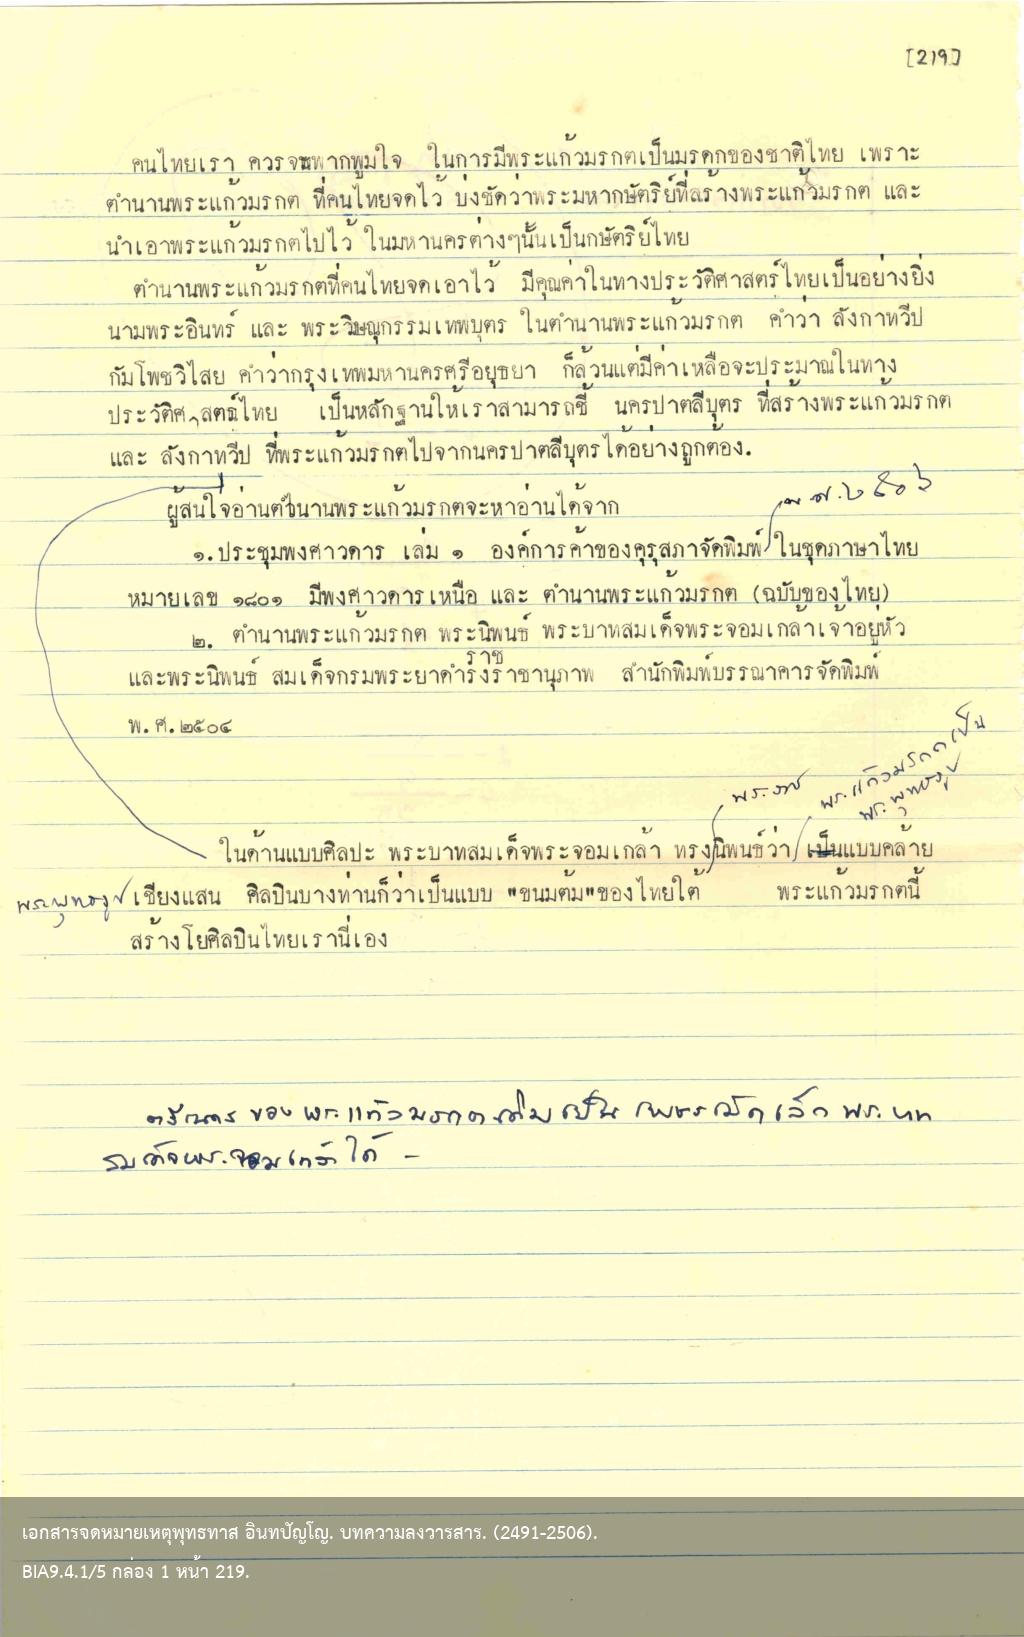 [219]
คนไทยเรา ควรจะพากพูมใจ ในการมีพระแก้วมรกตเป็นมรดกของชาติไทย เพราะ
ตำนานพระแก้วมรกต ที่คนไทยจดไว้ บ่งชัดว่าพระมหากษัตริย์ที่สร้างพระแก้วมรกต และ
นำเอาพระแก้วมรกตไปไว้ ในมหานครต่างๆนั้นเป็นกษัตริย์ไทย
ตำนานพระแก้วมรกตที่คนไทยจดเอาไว้ มีคุณค่าในทางประวัติศาสตร์ไทยเป็นอย่างยิ่ง
นามพระอินทร์ และ พระวิษณุกรรมเทพบุตร ในตำนานพระแก้วมรกต คำว่า ลังกาทวีป
กัมโพชวิไสย คำว่ากรุงเทพมหานครศรีอยุธยา ก็ล้วนแต่มีค่าเหลือจะประมาณในทาง
ประวัติศาสตร์ไทย เป็นหลักฐานให้เราสามารถชี้ นครปาตลีบุตร ที่สร้างพระแก้วมรกต
และ ลังกาทวีป ที่พระแก้วมรกตไปจากนครปาตลีบุตรได้อย่างถูกต้อง.
ผู้สนใจอ่านตำนานพระแก้วมรกตจะหาอ่านได้จาก
พ.ศ.๒๕๐๖
๑.ประชุมพงศาวดาร เล่ม ๑ องค์การค้าของคุรุสภาจัดพิมพ์ ในชุดภาษาไทย
หมายเลข ๑๘๐๑ มีพงศาวดารเหนือ และ ตำนานพระแก้วมรกต (ฉบับของไทย)
๒. ตำนานพระแก้วมรกต พระนิพนธ์ พระบาทสมเด็จพระจอมเกล้าเจ้าอยู่หัว
ราช
และพระนิพนธ์ สมเด็จกรมพระยาดำรงราชานุภาพ สำนักพิมพ์บรรณาคารจัดพิมพ์
พ.ศ.๒๕๐๔
พระราช
พระแก้วมรกตเป็น
พระพุทธรูป
ในด้านแบบศิลปะ พระบาทสมเด็จพระจอมเกล้า ทรงนิพนธ์ว่า เป็นแบบคล้าย
พระพุทธรูป เชียงแสน ศิลปินบางท่านก็ว่าเป็นแบบ "ขนมต้ม"ของไทยใต้ พระแก้วมรกตนี้
สร้างโยศิลปินไทยเรานี่เอง
ของ พระแก้วมรกตเดิมเป็น เพชรเม็ดเล็ก พระบาท
สมเด็จพระจอมเกล้าได้ –
เอกสารจดหมายเหตุพุทธทาส อินทปัญโญ. บทความลงวารสาร. (2491-2506).
BIA9.4.1/5 กล่อง 1 หน้า 219.